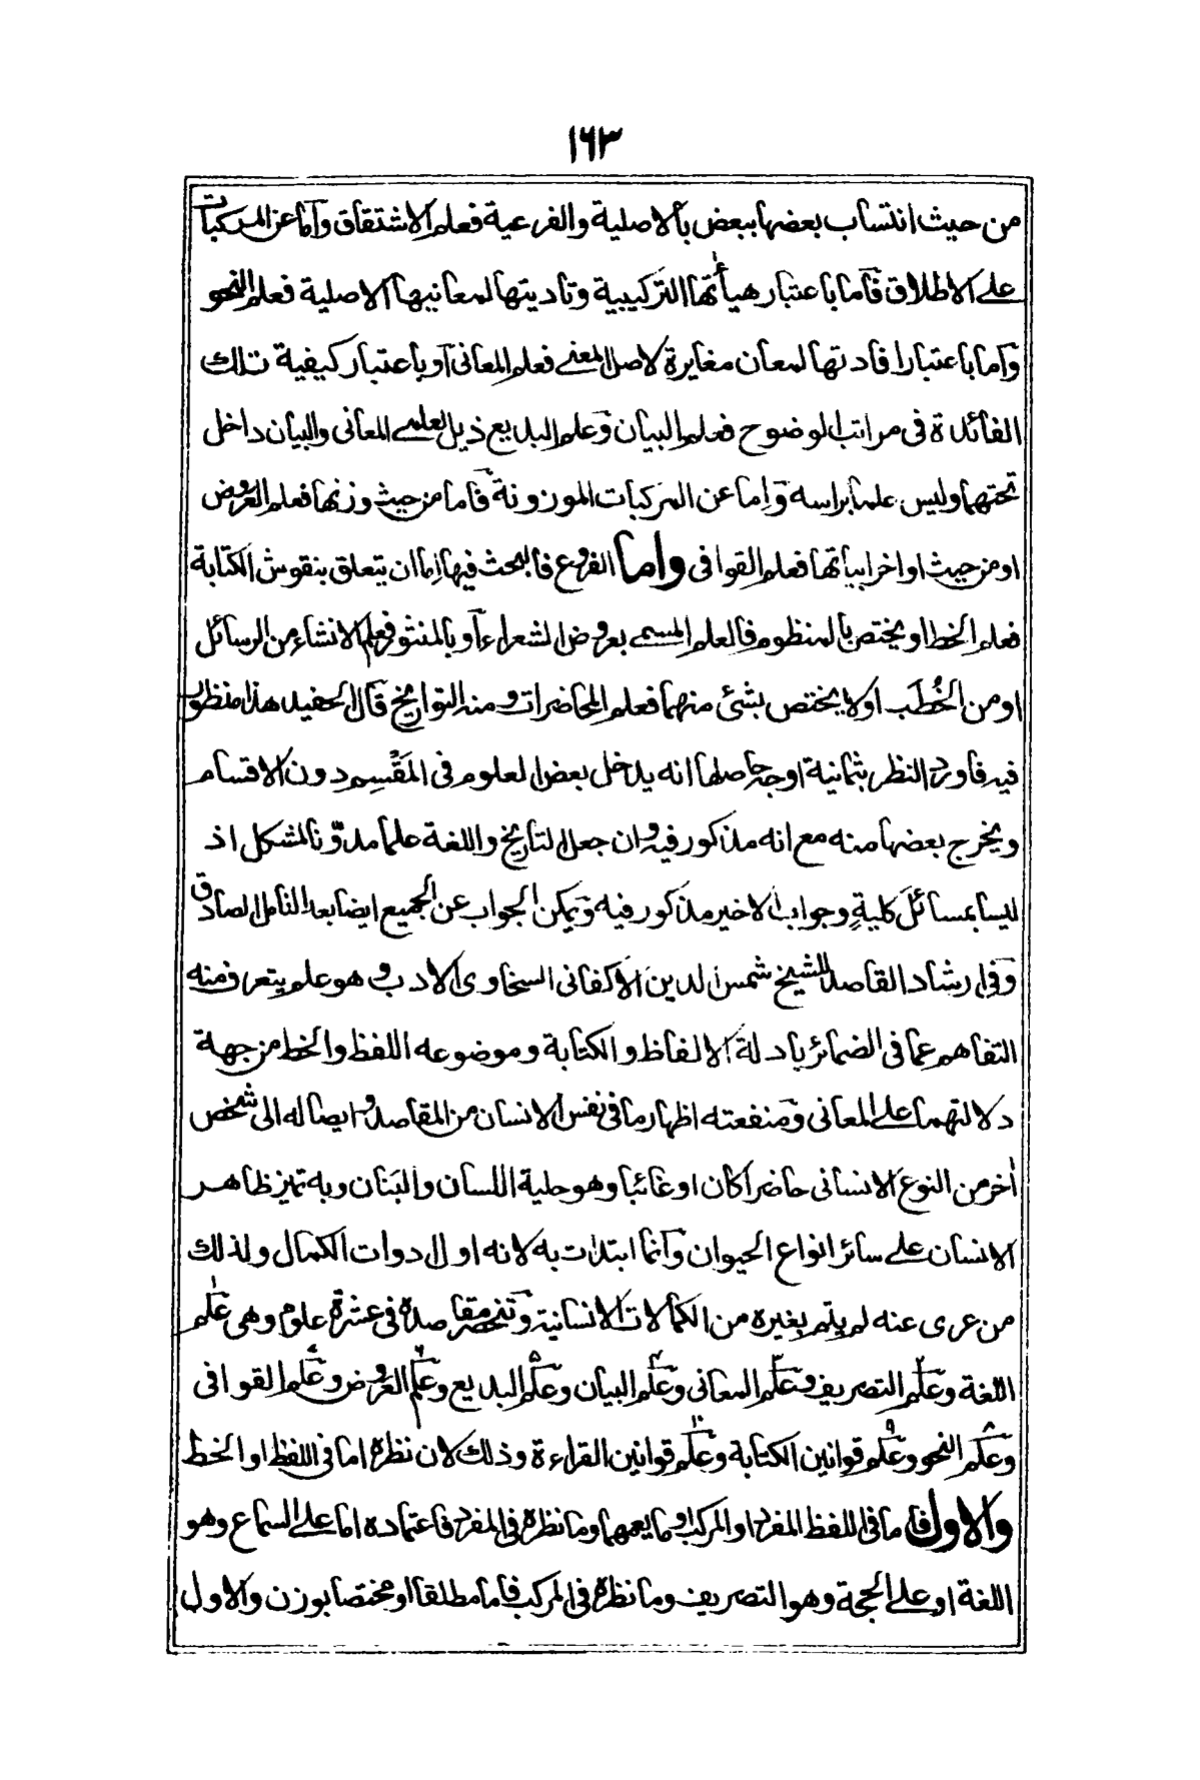 ١٦٣
من حيث انتساب بعضها ببعض بالاصلية والفرعية فعلم الاشتقاق وآما عن المركبات
على الاطلاق فآما باعتبار هيأتها التركيبية وتاديتها لمعانيها الاصلية فعلم النحو
وآما باعتبار افادتها لمعان مغايرة لاصل المعنى فعلم المعانى آو باعتبار كيفية تلك
الفائدة فى مراتب الوضوح فعلم البيان وعلم البديع ذيل لعلمى المعانى والبيان داخل
تحتهما وليس علما براسه وآما عن المركبات الموزونة فآما من حيث وزنها فعلم العروض
او من حيث اواخر ابياتها فعلم القوافى واما الفروع فالبحث فيها اما ان يتعلق بنقوش الكتابة
فعلم الخط او يختص بالمنظوم فالعلم المسمى بعروض الشعراء آو بالمنثور فعلم الانشاء من الرسائل
او من الخُطَب او لا يختص بشئ منهما فعلم المحاضرات ومنه التواريخ قال الحفيد هذا منظور
فيه فاورد النظر بثمانية اوجه حاصلها انه يدخل بعض العلوم فى المَقْسِم دون الاقسام
ويخرج بعضها منه مع انه مذكور فيه وان جعل التاريخ واللغة علما مدوّنا لمشكل اذ
ليسا بمسائلَ كليةٍ وجواب الاخير مذكور فيه ويمكن الجواب عن الجميع ايضا بعد التامل الصادق
وفى ارشاد القاصد للشيخ شمس الدين الاكفانى السخاوى الادب وهو علم يتعرف منه
التفاهم عما فى الضمائر بادلة الالفاظ والكتابة وموضوعه اللفظ والخط من جهة
دلالتهما على المعانى ومنفعته اظهار ما فى نفس الانسان من المقاصد وايصاله الى شخص
اٰخر من النوع الانسانى حاضرا كان او غائبا وهو حلية اللسان والبَنان وبه تميز ظاهر
الانسان على سائر انواع الحيوان وآنما ابتدات به لانه اول ادوات الكمال ولذلك
من عرى عنه لم يتم بغيره من الكمالات الانسانية وتنحصر مقاصده فى عشرة علوم وهى علم
اللغة وعلم التصريف وعلم المعانى وعلم البيان وعلم البديع وعلم العروض وعلم القوافى
وعلم النحو وعلم قوانين الكتابة وعلم قوانين القراءة وذلك لان نظره اما فى اللفظ او الخط
والاول فاما فى اللفظ المفرد او المركب او ما يعمهما وما نظره فى المفرد فاعتماده اما على السماع وهو
اللغة او على الحجة وهو التصريف وما نظره فى المركب فاما مطلقا او مختصا بوزن والاول